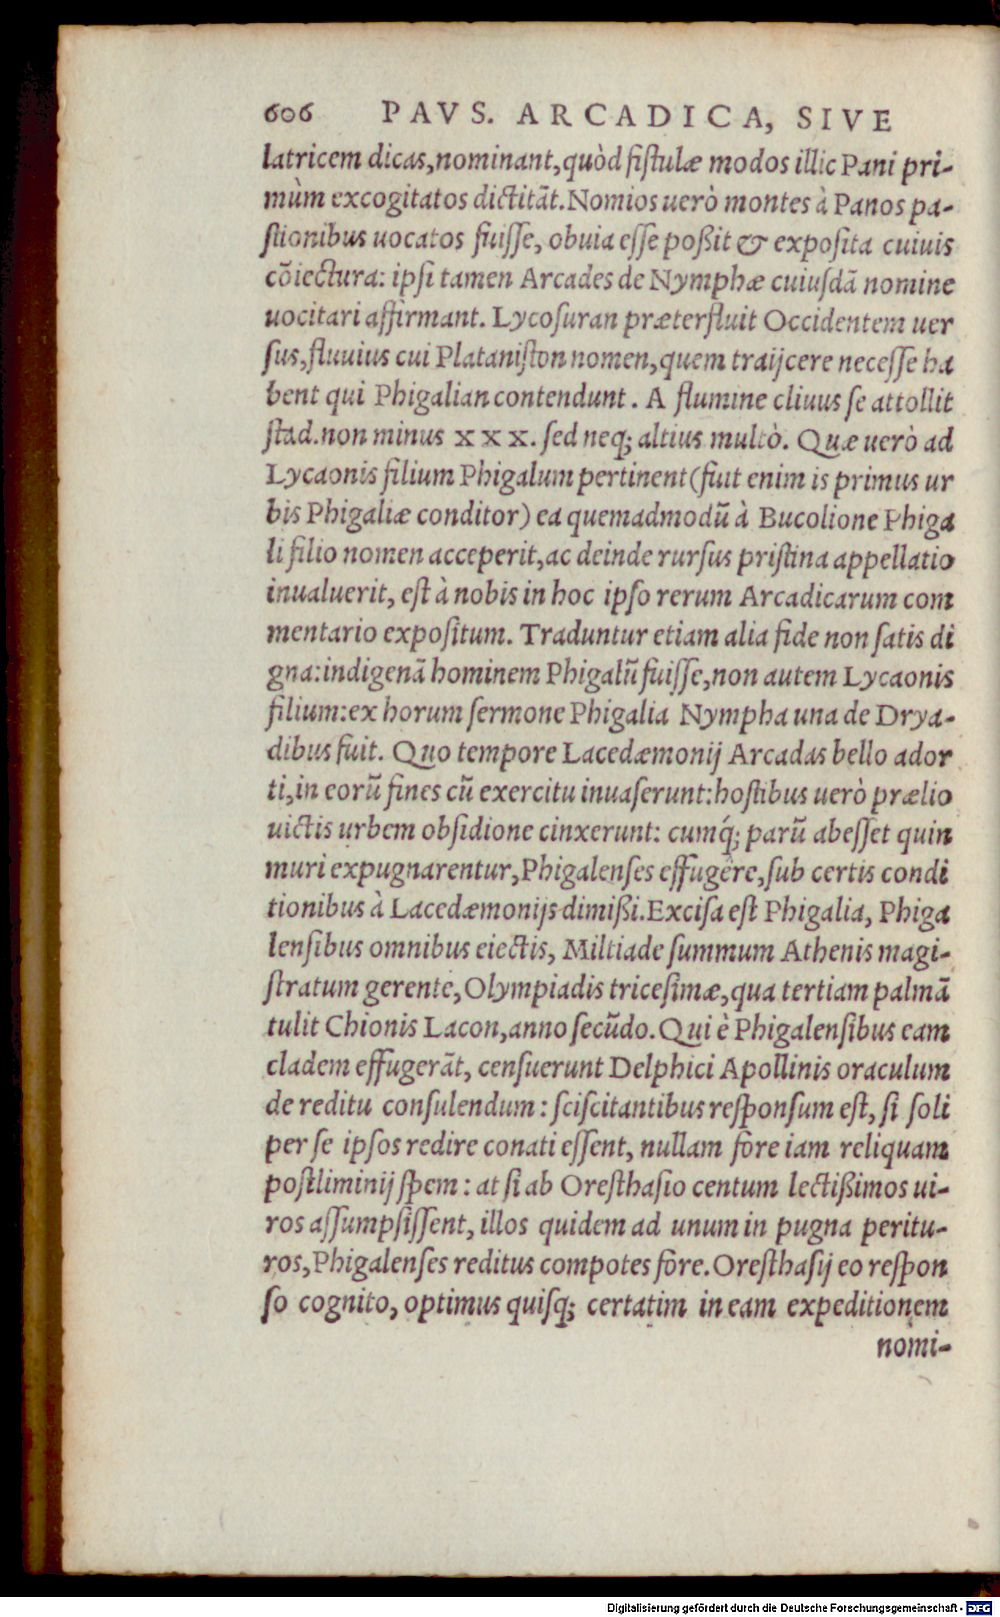 606 PAVS. ARCADICA, SIVE
latricem dicas, nominant, quòd fistulæ modos illic Pani pri-
mùm excogitatos dictitãt. Nomios uerò montes à Panos pa-
stionibus uocatos fuisse, obuia esse poßit & exposita cuiuis
cõiectura: ipsi tamen Arcades de Nymphæ cuiusdã nomine
uocitari affirmant. Lycosuran præterfluit Occidentem uer
sus, fluuius cui Plataniston nomen, quem traijcere necesse ha
bent qui Phigalian contendunt. A flumine cliuus se attollit
stad. non minus XXX. sed neq; altius multò. Quæ uerò ad
Lycaonis filium Phigalum pertinent (fuit enim is primus ur
bis Phigaliæ conditor) ea quemadmodũ à Bucolione Phiga
li filio nomen acceperit, ac deinde rursus pristina appellatio
inualuerit, est à nobis in hoc ipso rerum Arcadicarum com
mentario expositum. Traduntur etiam alia fide non satis di
gna: indigenã hominem Phigalũ fuisse, non autem Lycaonis
filium: ex horum sermone Phigalia Nympha una de Drya-
dibus fuit. Quo tempore Lacedæmonij Arcadas bello ador
ti, in eorũ fines cũ exercitu inuaserunt: hostibus uerò prælio
uictis urbem obsidione cinxerunt: cumq́; parũ abesset quin
muri expugnarentur, Phigalenses effugêre, sub certis condi
tionibus à Lacedæmonijs dimißi. Excisa est Phigalia, Phiga
lensibus omnibus eiectis, Miltiade summum Athenis magi-
stratum gerente, Olympiadis tricesimæ, qua tertiam palmã
tulit Chionis Lacon, anno secũdo. Qui è Phigalensibus eam
cladem effugerãt, censuerunt Delphici Apollinis oraculum
de reditu consulendum: sciscitantibus responsum est, si soli
per se ipsos redire conati essent, nullam fore iam reliquam
postliminij spem: at si ab Oresthasio centum lectißimos ui-
ros assumpsissent, illos quidem ad unum in pugna peritu-
ros, Phigalenses reditus compotes fore. Oresthasij eo respon
so cognito, optimus quisq; certatim in eam expeditionem
nomi-
Digitalisierung gefördert durch die Deutsche Forschungsgemeinschaft - DFG